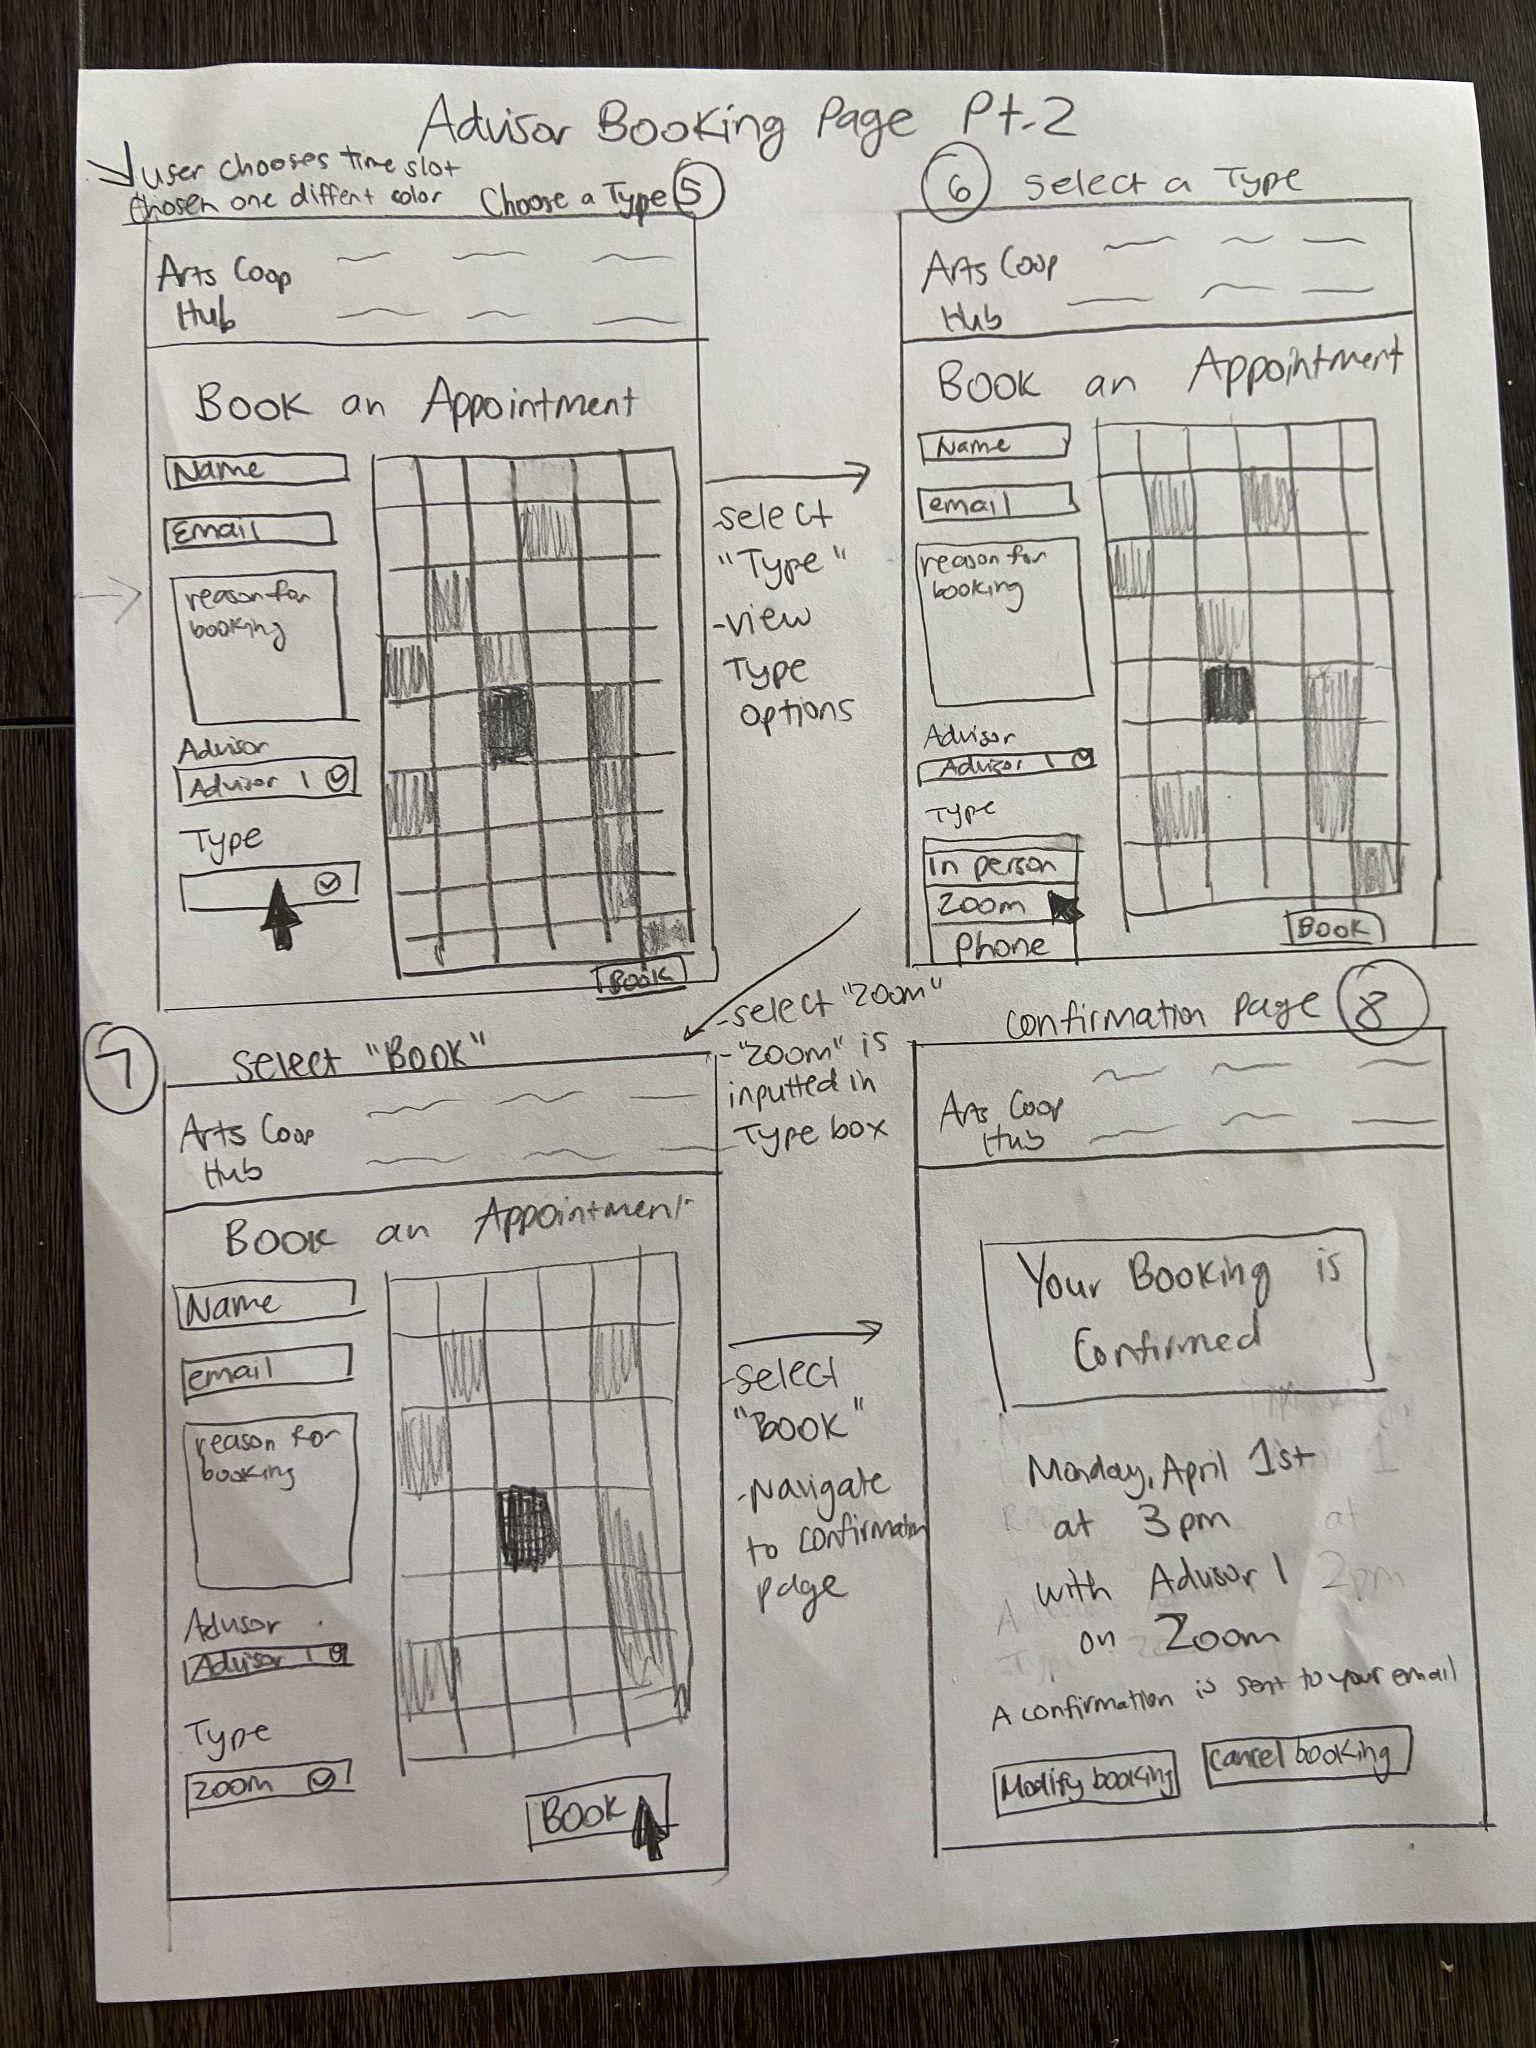 Advisor Booking Page Pt.2
user chooses time slot
chosen one diffent color
Choose a Type 5
Arts Coop
Hub
Book an Appointment
Name
Email
reason for
booking
Advisor
Advisor 1
Type
Book
-select
"Type"
-view
Type
options
6 select a Type
Arts Coop
Hub
Book an Appointment
Name
email
reason for
booking
Advisor
Advisor 1
Type
in person
Zoom
Phone
Book
-select "Zoom"
-"Zoom" is
inputted in
Type box
7 select "Book"
Arts Coop
Hub
Book an Appointment
Name
email
reason for
booking
Advisor
Advisor 1
Type
Zoom
Book
-select
"Book"
-Navigate
to confirmation
page
confirmation page 8
Arts Coop
Hub
Your Booking is
Confirmed
Monday, April 1st
at 3pm
with Advisor 1
on Zoom
A confirmation is sent to your email
Modify booking
cancel booking